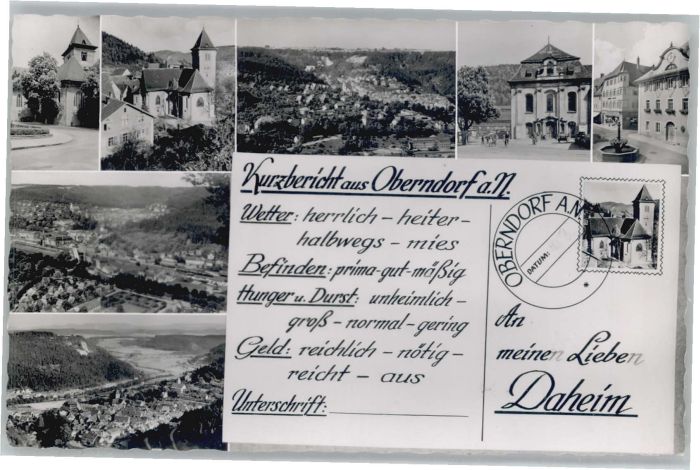 Kurzbericht aus Oberndorf a.N.
Wetter: herrlich – heiter –
halbwegs – mies
Befinden: prima-gut-mäßig
Hunger u. Durst: unheimlich –
groß – normal – gering
Geld: reichlich – nötig –
reicht – aus
Unterschrift:
OBERNDORF A.N.
DATUM:
An
meinen Lieben
Daheim